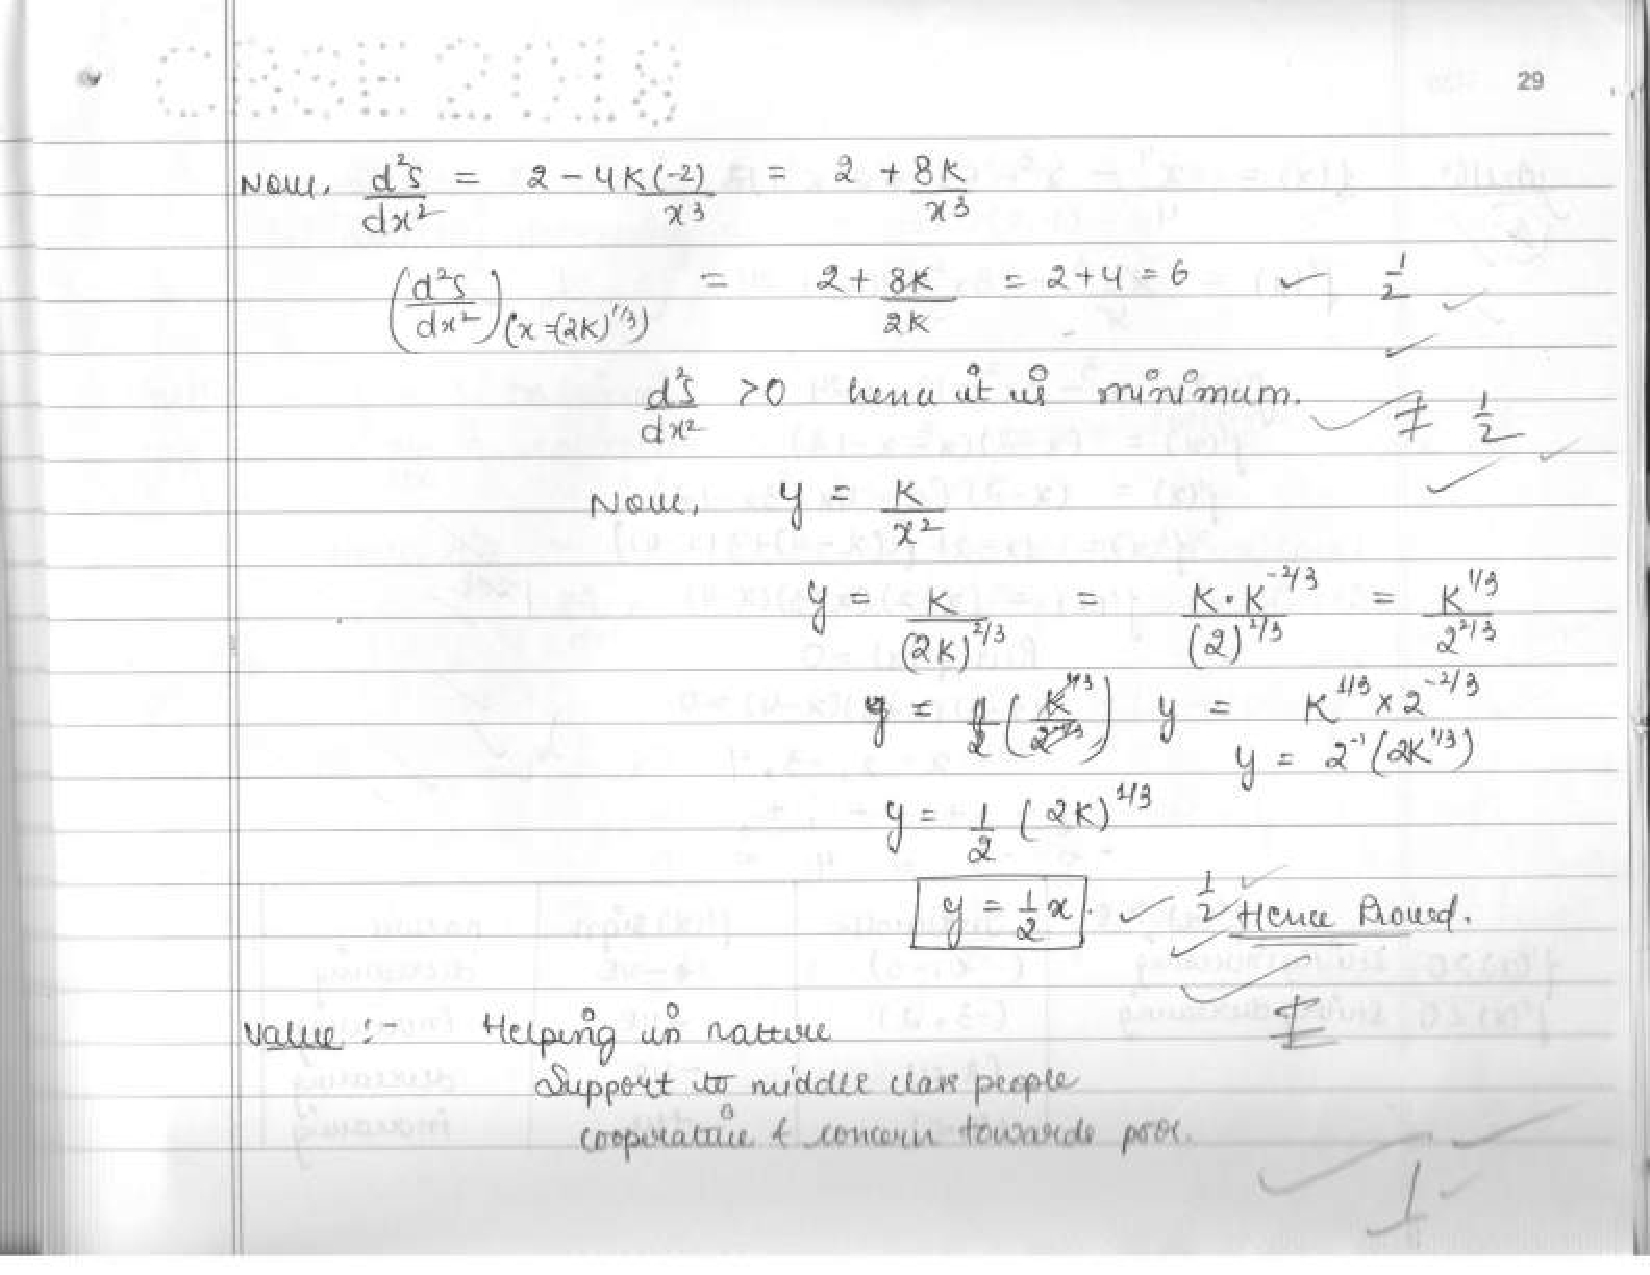 CBSE 2018
29
Now, d²S/dx² = 2 - 4K(-2)/x³ = 2 + 8K/x³
(d²S/dx²)(x=(2K)^1/3) = 2 + 8K/2K = 2+4 = 6 ✓ 1/2
d²S/dx² >0 hence it is minimum. ✓ 1/2
Now, y = K/x²
y = K/(2K)^2/3 = K·K^-2/3/(2)^2/3 = K^1/3/2^2/3
y = K^1/3 × 2^-2/3
y = 2^-1 (2K^1/3)
y = 1/2 (2K)^1/3
y = 1/2 x. ✓ 1/2 Hence Proved.
Value :- Helping in natture
Support to middle class people
cooperative & concern towards poor.
1